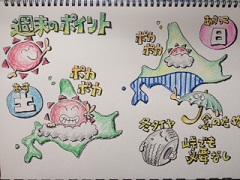 週末のポイント
あす
土
ポカ
ポカ
あさって
日
ポカ
ポカ
冬タイヤ
峠でも
必要なし